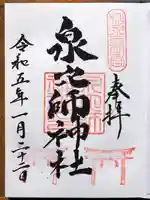 奉拝
泉穴師神社
令和五年一月二十二日